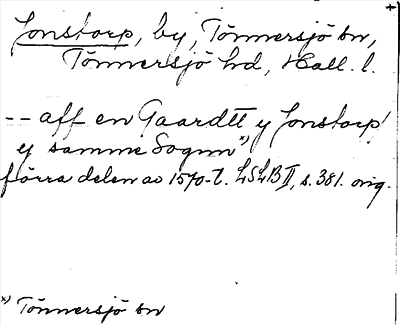 Jonstorp, by, Tönnersjö sn,
Tönnersjö hd, Hall. l.
-- aff en Gaardtt y Jonstorp
y samme Sognn x)
förra delen av 1570-t. LSLB II, s. 381. orig.
x) Tönnersjö sn